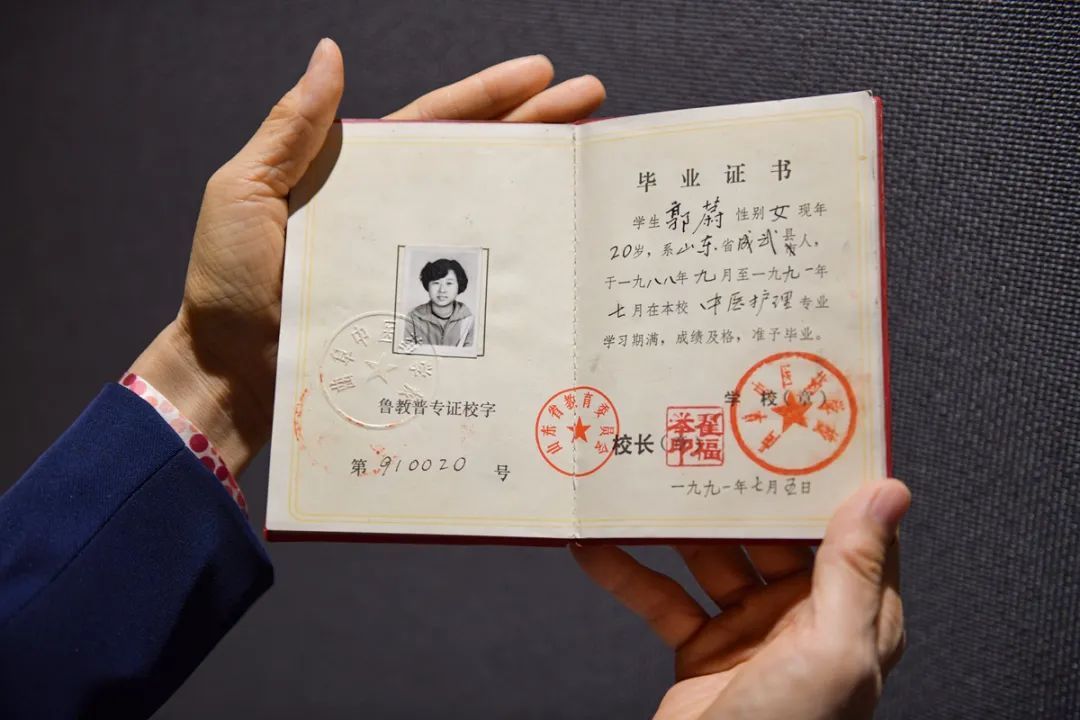 鲁教普专证校字
第 910020 号
山东省教育委员会
毕业证书
学生 郭蔚 性别 女 现年
20岁，系山东省成武县人，
于一九八八年九月至一九九一年
七月在本校 中医护理 专业
学习期满，成绩及格，准予毕业。
学校（章）
校长（章）
翟福举印
一九九一年七月五日